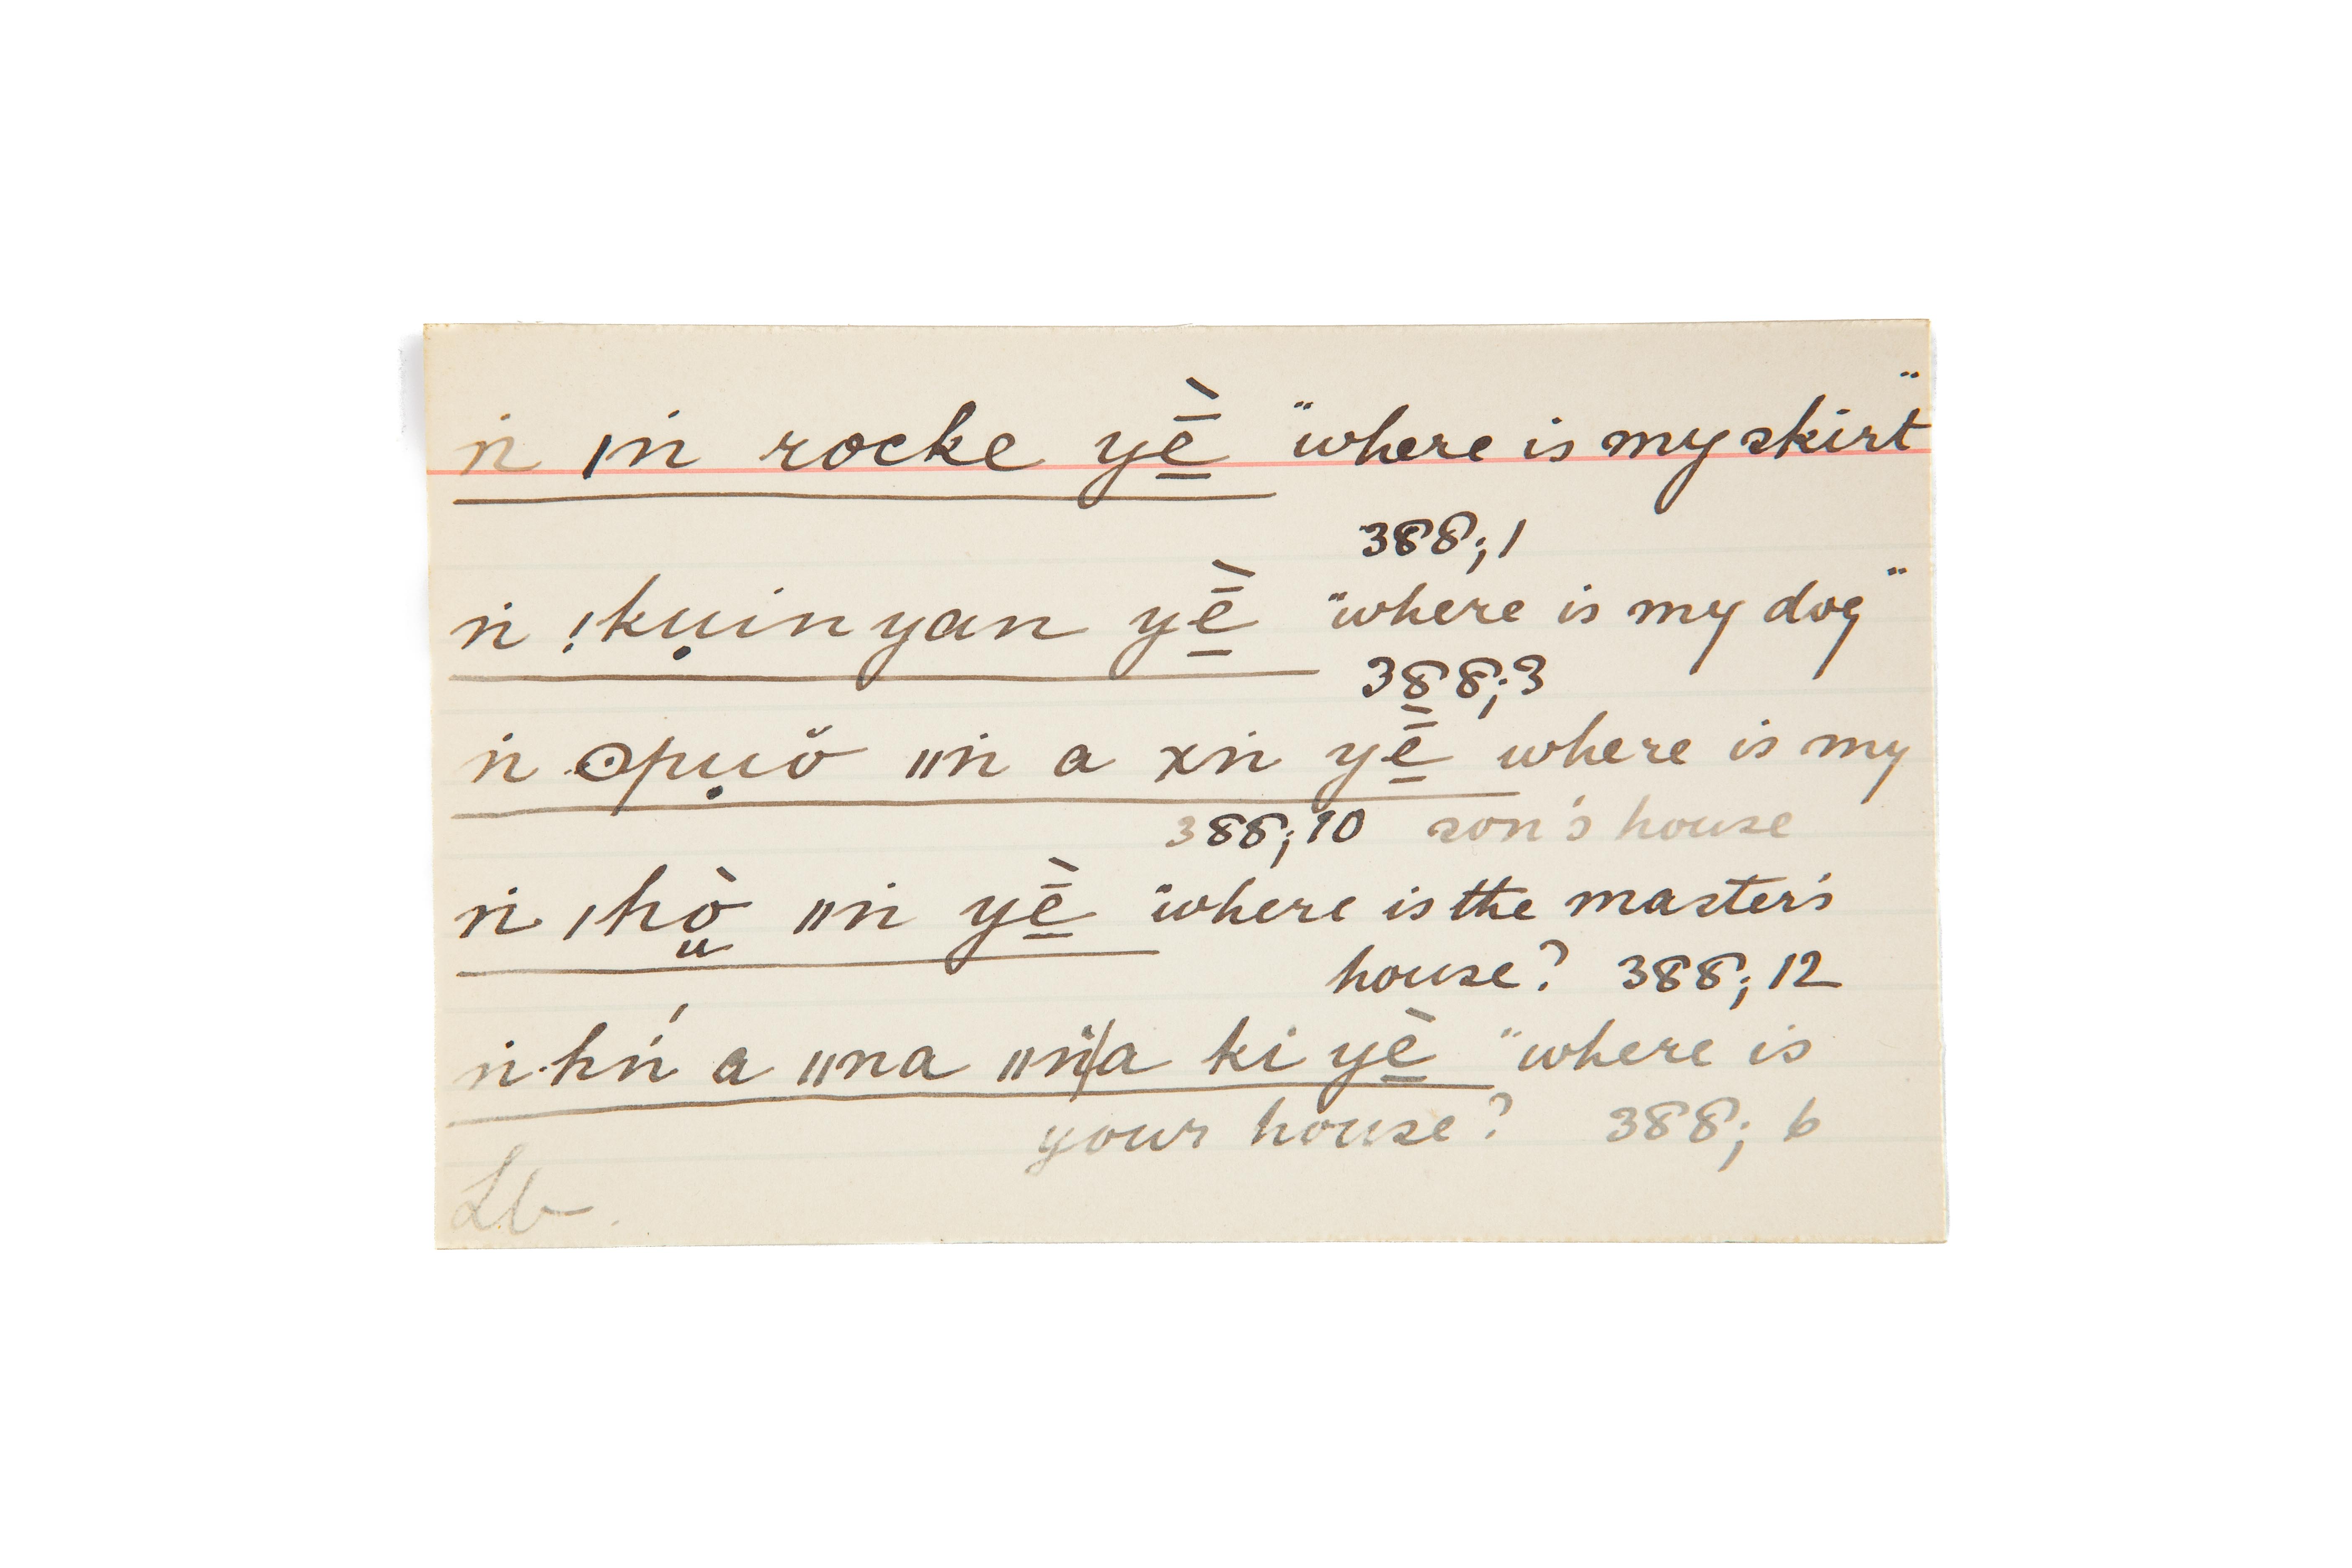 ṅ ǀṅ rocke yè̱̄ "where is my skirt"
388; 1
ṅ ǃkụinyan yè̱̄ "where is my dog"
388; 3
ṅ ʘpụŏ ǁṅ a xṅ yè̱̄ where is my
388; 10 son's house
ṅ ǀhò̤ ǁṅ yè̱̄ "where is the master's
house? 388; 12
ṅ hṅ́ a ǁna ǁṅ/a ki yè̱ "where is
your house? 388; 6
Lb.